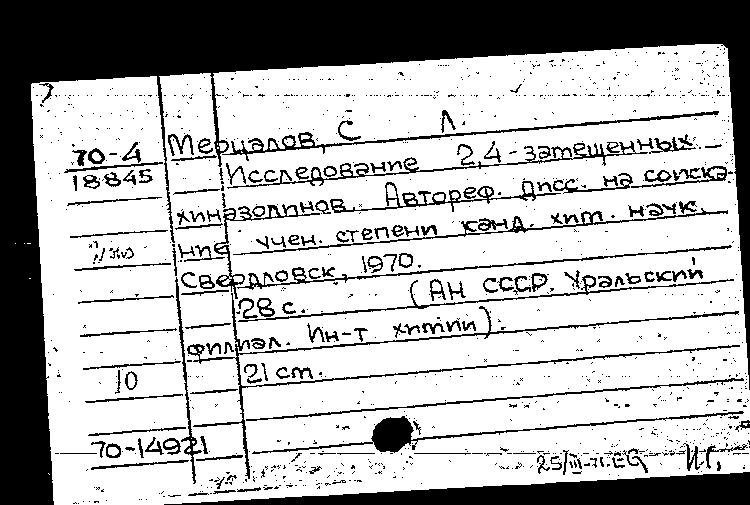 70-4 Мерцалов, С Л.
18845 Исследование 2,4-замещенных
хиназолинов. Автореф. дисс. на соиска-
ние учен. степени канд. хим. наук.
Свердловск, 1970.
28 с. (АН СССР. Уральский
филиал. Ин-т химии).
10 21 см.
70-14921
25/III-71. EG